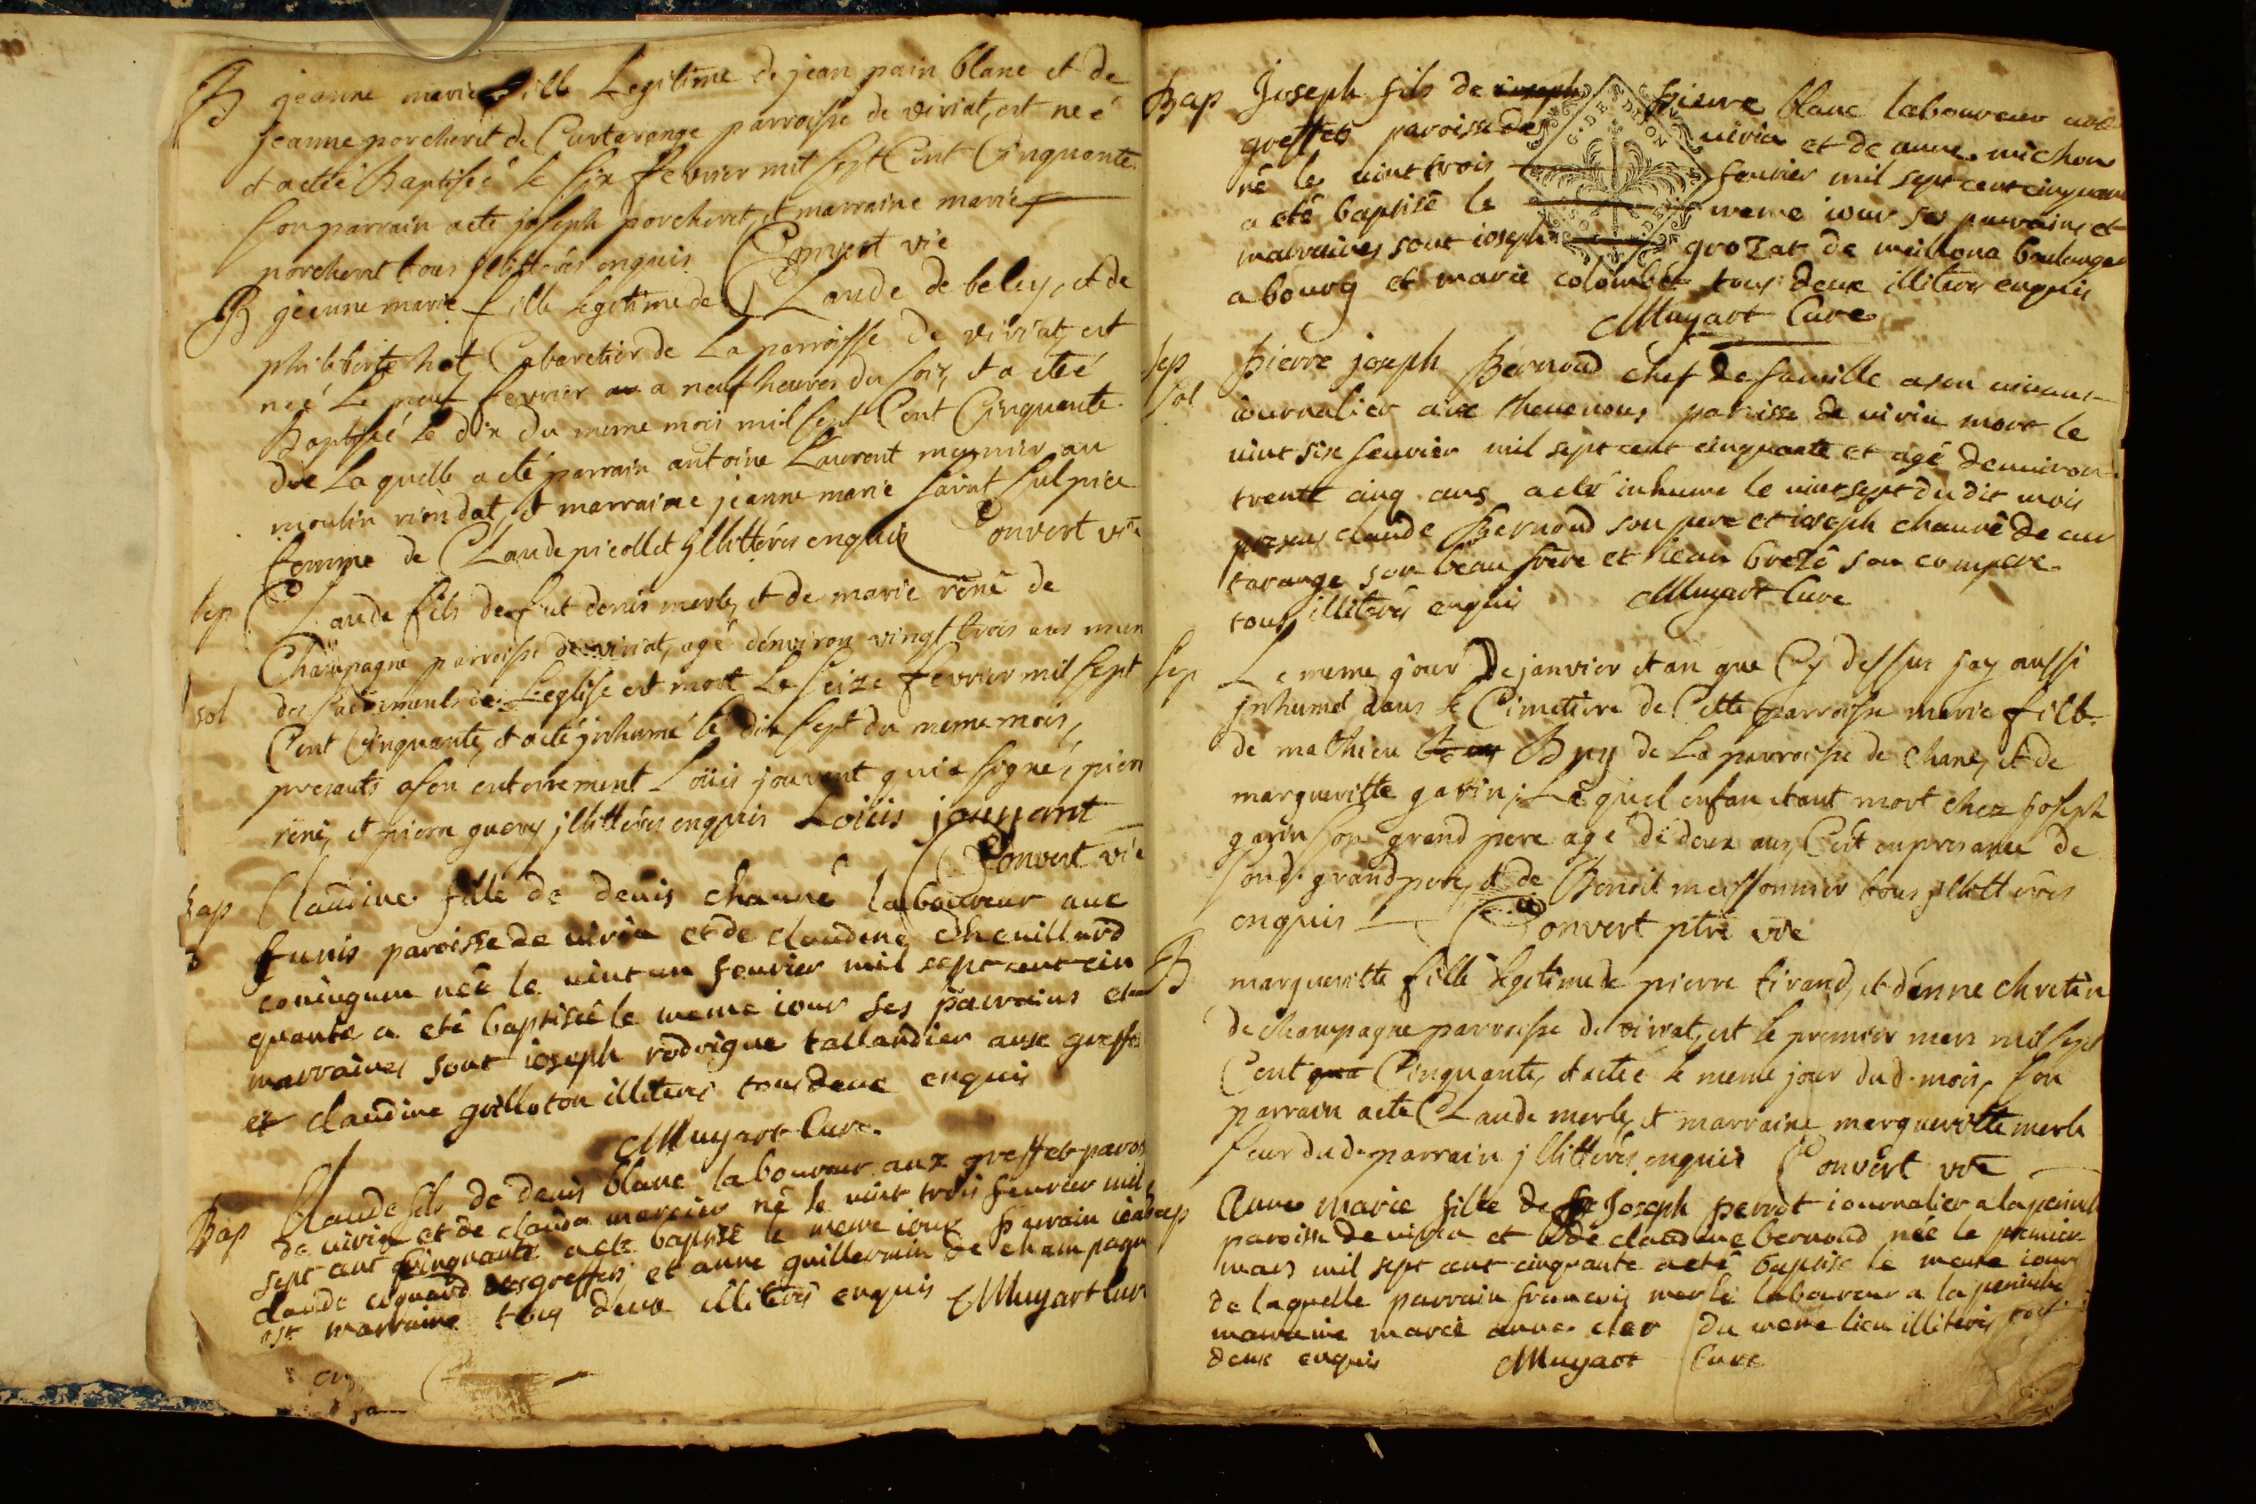 B jeanne marie fille Legitime de jean pain blanc et de
jeanne porcheret de Curtarange parroisse de viriat, est neé
et a etteé Baptiseé le six fevrier mil sept Cent Cinquante
son parrain a ete joseph porcheret, et marraine marie
porcheret tous illitterés enquis Convert vie
B jeanne marie fille legitime de Claude de beluy, et de
philiberte hot Cabaretier de La parroisse de viriat, est
neé Le neuf fevrier a neuf heures du soir, et a etteé
Baptiseé le dix du meme mois mil sept Cent Cinquante
de Laquelle a eté parrain antoine Laurent munier au
moulin riondat, et marraine jeanne marie saint sulpice
femme de Claude picollet jllittérés enquis Convert vie
sep Claude fils de fut denis merle, et de marie réné de
Champagne parroisse de viriat, agé d'environ vingt trois ans muni
sol des sacrements de Leglise est mort Le seize fevrier mil sept
Cent Cinquante, et a eté jnhumé le dix sept du meme mois,
presents a son enterrement Loüis jouvent qui a signé, pierre
réné, et pierre guery jllittérés enquis Loüis jouvant
Convert vie
bap Claudine fille de denis channé laboureur aux
funis paroisse de uiria et de claudine cheuillard
coniugum neé le uint un feurier mil sept cent cin
quante a eté baptisée le meme iour ses parrains et
marraines sont ioseph rodrigue tallandier aux greffets
et claudine guilloton illiteres tous deux enquis
Muyart Cure.
Bap Claude fils de denis blanc laboureur aux greffets parois
de uiria et de clauda mercier né le uint trois feurier mil
sept cent cinquante a eté baptisé le meme iour parrain
claude des greffets et anne guillermin de champagne
est marraine tous deux illiterés enquis Muyart Cure
Bap Joseph fils de ioseph Pierre blanc laboureur aux
greffets paroisse de uiria et de anne michon
né le uint trois feurier mil sept cent cinquante
a eté baptisé le meme iour ses parrains et
marraines sont ioseph grozat de meillona boulanger
a bourg et marie colombet tous deux illiteres enquis
G. DE DIJON
Muyart Cure
sep Pierre joseph Bernoud chef de famille a son uiuant
sol iournalier aux theuenons paroisse de uiria mort le
uint six feurier mil sept cent cinquante et agé denuiron
trente cinq ans a eté inhumé le uint sept du dit mois
presens claude Bernoud son pere et ioseph chanué de cur
tarange son beau frere et iean brezé son compere
tous illiterés enquis Muyart Cure
Sep Le meme jour de janvier et an que Cy dessus jay aussi
jnhumé dans le Cimetiere de Cette parroisse marie fille
de mathieu Buy de La parroisse de Chane, et de
margueritte gavin; Le quel enfant etant mort chez joseph
gavin son grand pere agé de deux ans, C'est en presence de
sond. grand pere, et de Benoit meissonnier tous jllittérés
enquis Convert ptre vie
B margueritte fille legitime de pierre tirand, et d'enne chretin
de champagne parroisse de viriat, est le premier mars mil sept
Cent Cinquante, et a eteé le meme jour dud. mois, son
parrain a ete Claude merle, et marraine margueritte merle
sœur dud. parrain jllittérés enquis Convert vie
bap Anne Marie fille de Joseph perrot iournalier a la peniul
paroisse de uiria et de claudine bernoud née le premier
mars mil sept cent cinquante a eté baptisé le meme iour
de laquelle parrain francois merle laboureur a la peniule
marraine marie anne cler du meme lieu illiterés tout
deux enquis Muyart Cure